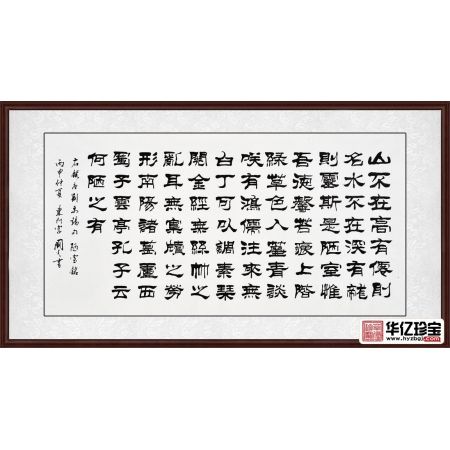 山不在高有僊則
名水不在深有龍
則靈斯是陋室惟
吾德馨苔痕上階
綠草色入簾青談
咲有鴻儒往來無
白丁可以調素琴
閱金經無絲竹之
亂耳無案牘之勞
形南陽諸葛廬西
蜀子雲亭孔子云
何陋之有
右錄唐劉禹錫句陋室銘
丙申仲夏 書
华亿珍宝
www.hyzbgj.com